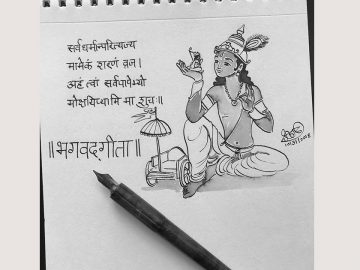 सर्वधर्मान्परित्यज्य
मामेकं शरणं व्रज।
अहं त्वां सर्वपापेभ्यो
मोक्षयिष्यामि मा शुचः॥
॥भगवद्‌गीता॥